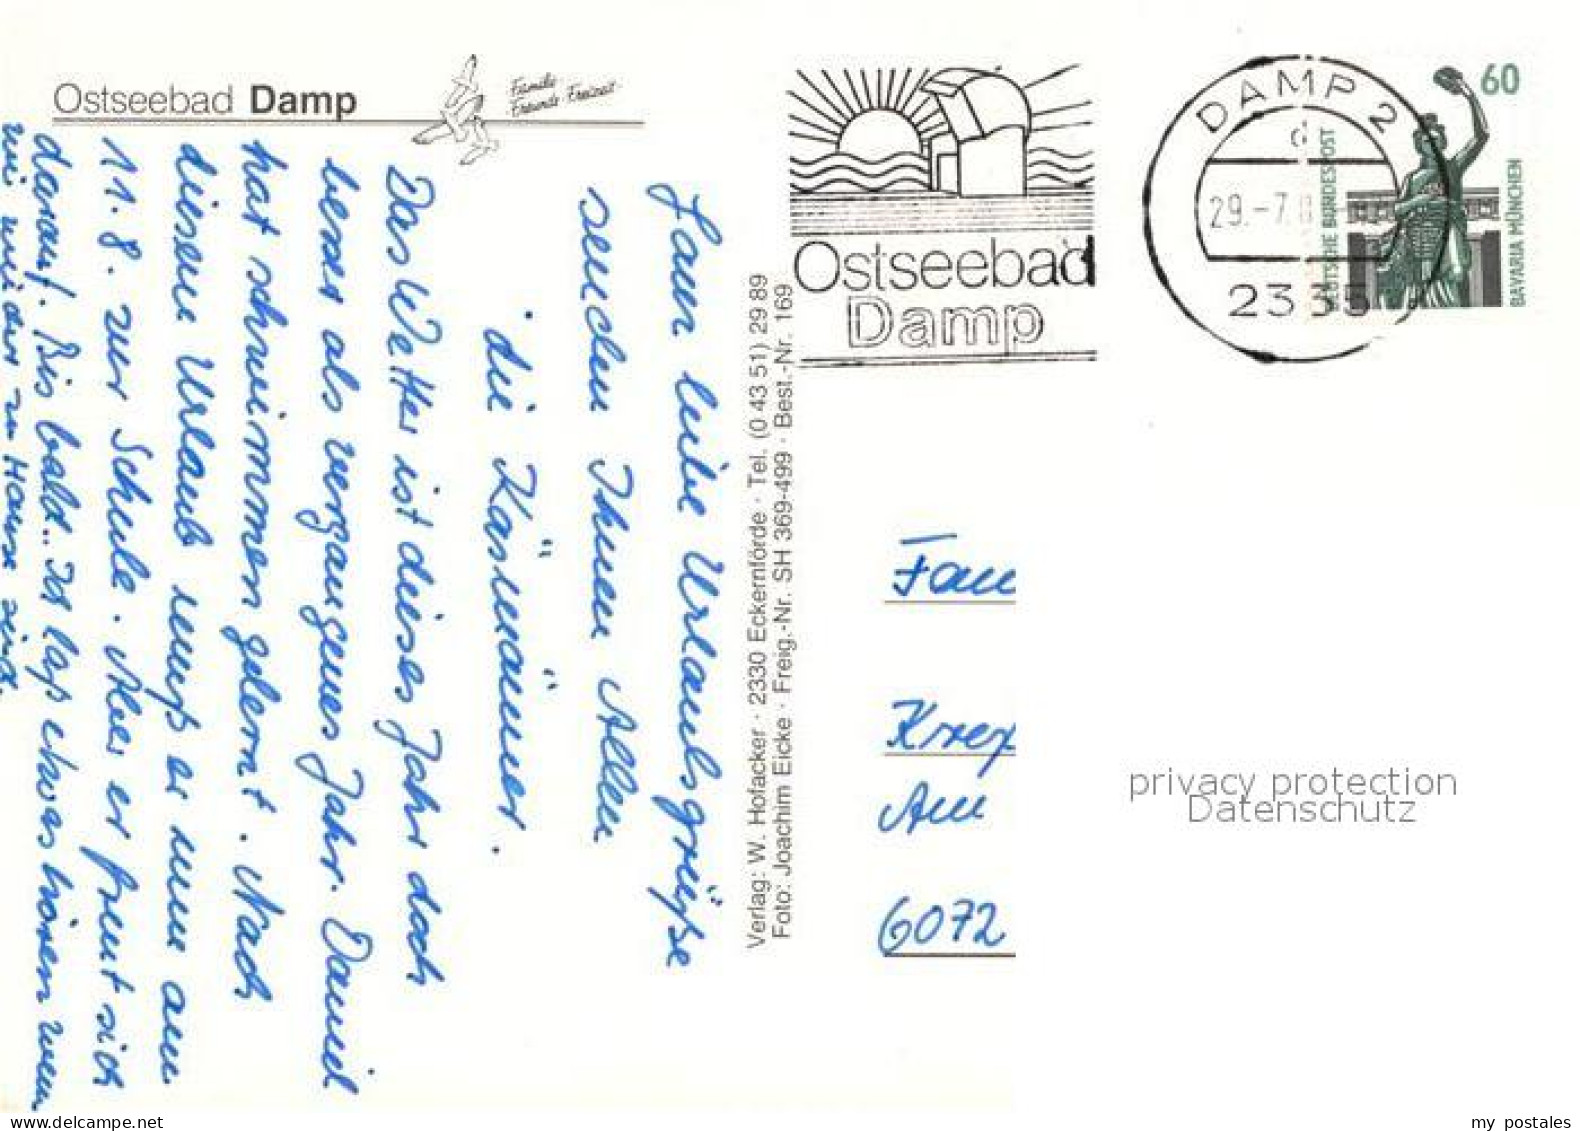 Ostseebad Damp
Familie
Freunde Freizeit
Ganz liebe Urlaubsgrüße
senden Ihnen Allen
die Käsmänner.
Das Wetter ist dieses Jahr doch
besser als vergangenes Jahr. Daniel
hat schwimmen gelernt. Nach
diesem Urlaub muß er nun am
11.8. zur Schule. Aber er freut sich
darauf. Bis bald.. Ich laß etwas hören wenn
wir wieder zu Hause sind.
Verlag: W. Hofacker · 2330 Eckernförde · Tel. (0 43 51) 29 89
Foto: Joachim Eicke · Freig.-Nr. SH 369-499 · Best.-Nr. 169
Ostseebad
Damp
DAMP 2
d
29.-7.8
2335
60
DEUTSCHE BUNDESPOST
BAVARIA MÜNCHEN
Fam
Am
6072
privacy protection
Datenschutz
my postales